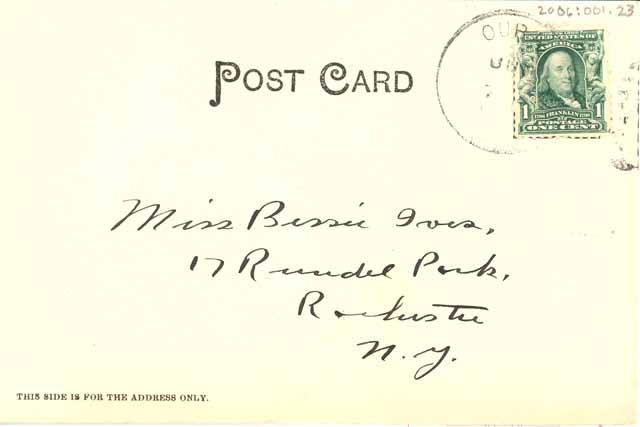 2006:001.23
OUR
UN
SERIES 1902
UNITED STATES OF
AMERICA
POST CARD
1 1706 FRANKLIN 1790 1
POSTAGE
ONE CENT
Miss Bessie Ives,
17 Rundel Park,
Rochester
N.Y.
THIS SIDE IS FOR THE ADDRESS ONLY.